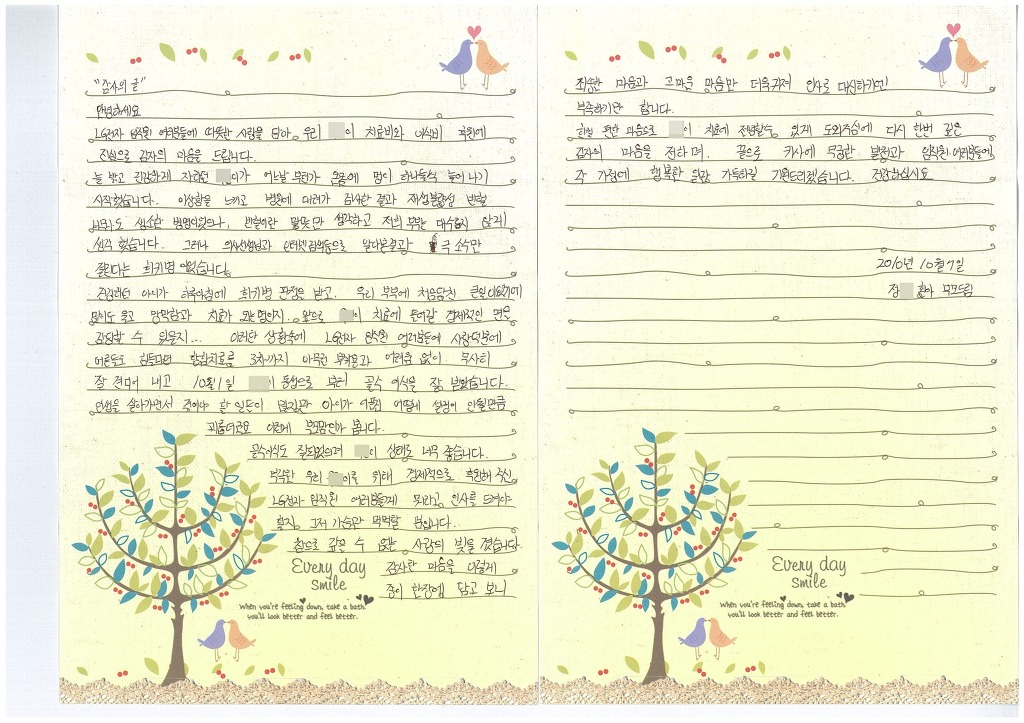 "감사의 글"
안녕하세요
LG전자 임직원 여러분들에 따뜻한 사랑을 담아, 우리 이 치료비와 이식비 후원에
진심으로 감사의 마음을 드립니다.
늘 밝고 건강하게 자라던 이가 어느날 부턴가 온몸에 멍이 하나둘씩 늘어나기
시작했습니다. 이상함을 느끼고 병원에 데려가 검사한 결과 재생불량성 빈혈
너무나도 생소한 병명이었으나, 빈혈이란 말뜻만 생각하고 저희 부부는 대수롭지 않게
생각 했습니다. 그러나 의사선생님과 인터넷검색등으로 알아본결과 극 소수만
걸린다는 희귀병 이었습니다.
건강하던 아이가 하루아침에 희귀병 판정을 받고, 우리 부부에 처음닥친 큰일이었기에
많이도 울고 막막함과 치료가 되는병인지.. 앞으로 이 치료에 들어갈 경제적인 면은
감당할 수 있을지... 이러한 상황속에 LG전자 임직원 여러분들에 사랑덕분에
어른들도 힘들다던 항암치료를 3차까지 아무런 부작용과 어려움 없이 무사히
잘 견디어 내고 10월1일 이 동생으로 부터 골수 이식을 잘 받았습니다.
인생을 살아가면서 죽어나 할 일든이 많겠지만 아이가 아픔에 어떻게 설명이 안될만큼
괴롭더군요 이런게 부모맘인가 봅니다.
골수이식도 잘되었으며 이 상태도 너무 좋습니다.
부족한 우리 이를 위해 경제적으로 후원해 주신
LG전자 임직원 여러분들게 뭐라고 인사를 드려야
할지. 그저 가슴만 먹먹할 뿐입니다..
참으로 갚을 수 없는, 사랑의 빚을 졌습니다.
감사한 마음을 이렇게
종이 한장에 담고 보니
Every day
smile
When you're feeling down, take a bath.
you'll look better and feel better.
죄송한 마음과 고마운 마음만 더욱커져 인사로 대신하기엔
부족하기만 합니다.
한결 편한 마음으로 이 치료에 전념할수 있게 도와주심에 다시 한번 깊은
감사의 마음을 전하며, 끝으로 귀사에 무궁한 발전과 임직원 여러분들에
각 가정에 행복한 일만 가득하길 기원드리겠습니다. 건강하십시요
2016년 10월 7일
정 환아 부모드림
Every day
smile
When you're feeling down, take a bath.
you'll look better and feel better.